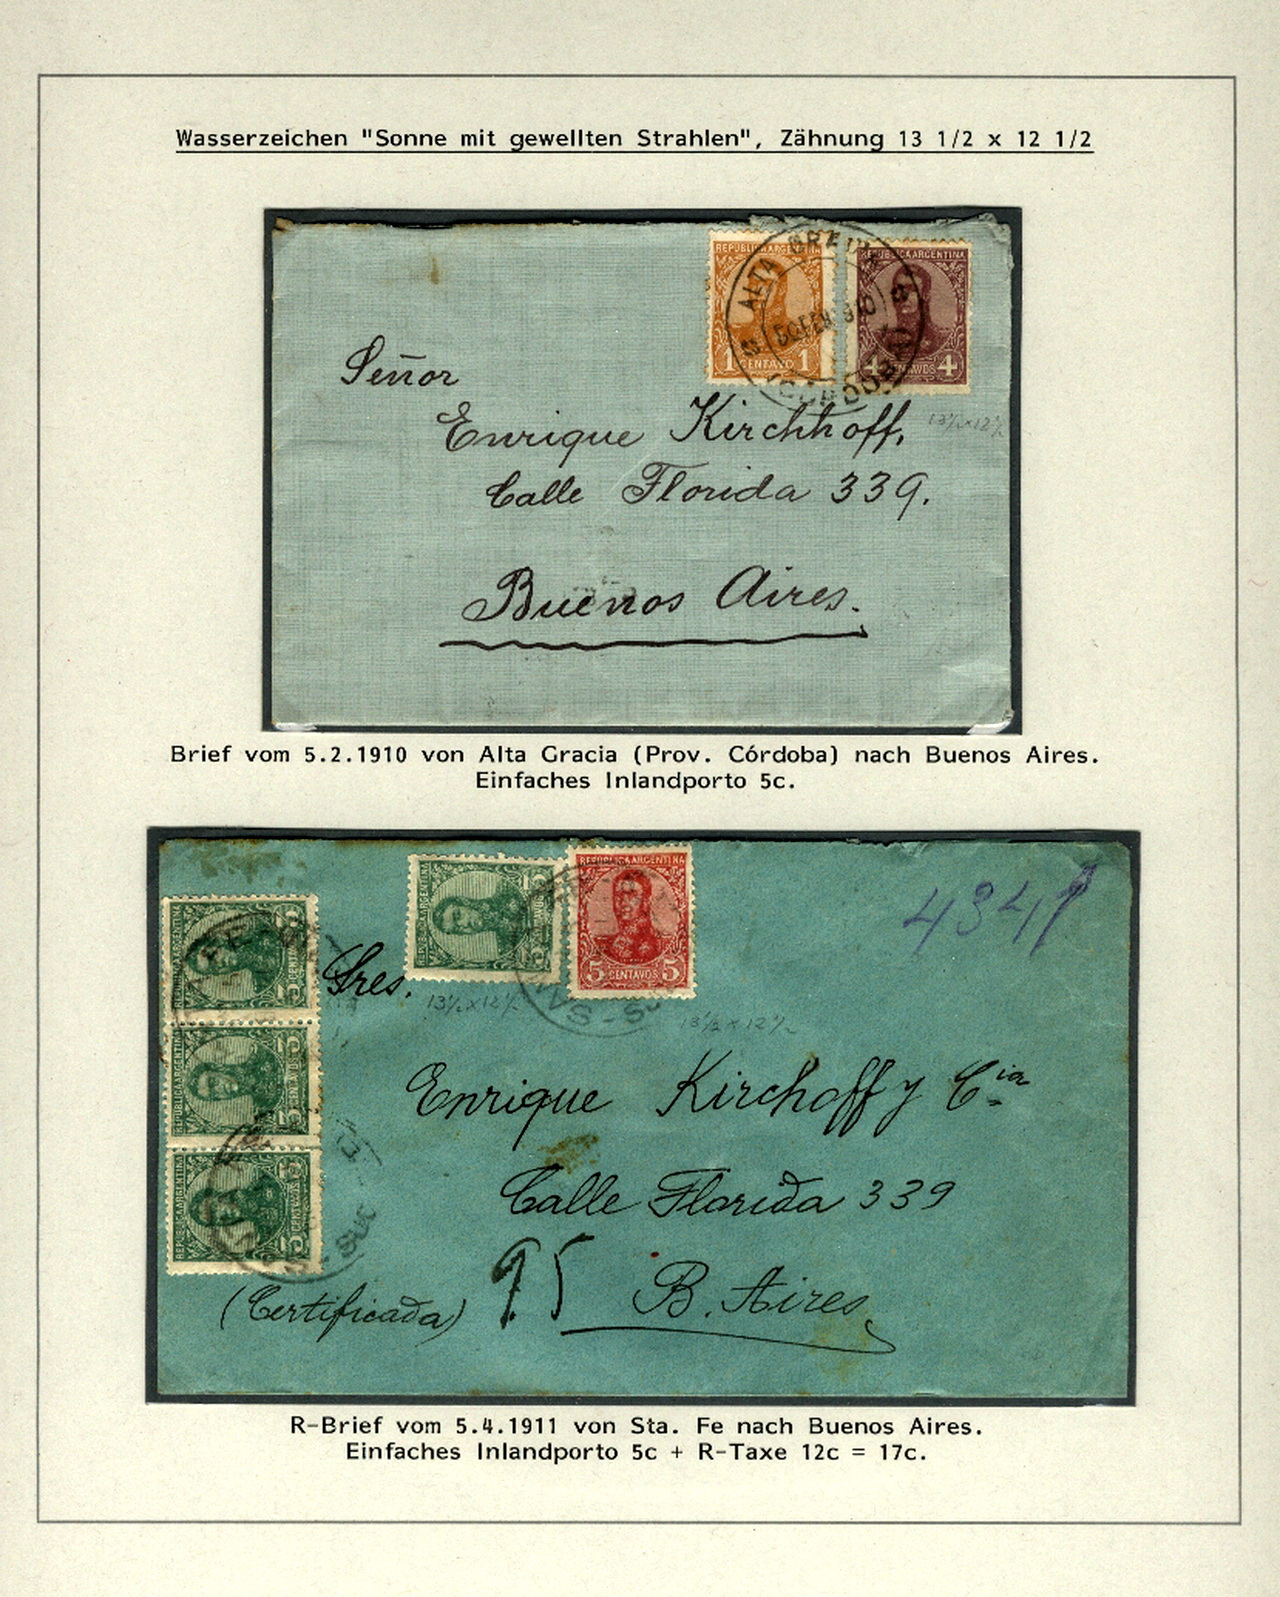 Wasserzeichen "Sonne mit gewellten Strahlen", Zähnung 13 1/2 x 12 1/2
REPUBLICA ARGENTINA
1 CENTAVO 1
REPUBLICA ARGENTINA
4 CENTAVOS 4
ALTA GRACIA
(CORDOBA)
Señor
Enrique Kirchhoff,
13½x12½
Calle Florida 339.
Buenos Aires.
Brief vom 5.2.1910 von Alta Gracia (Prov. Córdoba) nach Buenos Aires.
Einfaches Inlandporto 5c.
REPUBLICA ARGENTINA
CENTAVOS
REPUBLICA ARGENTINA
5 CENTAVOS 5
REPUBLICA ARGENTINA
CENTAVOS
REPUBLICA ARGENTINA
CENTAVOS
REPUBLICA ARGENTINA
CENTAVOS
Sres.
13½x12½
13½x12½
Enrique Kirchoff y Cia
Calle Florida 339
B. Aires
(Certificada)
R-Brief vom 5.4.1911 von Sta. Fe nach Buenos Aires.
Einfaches Inlandporto 5c + R-Taxe 12c = 17c.